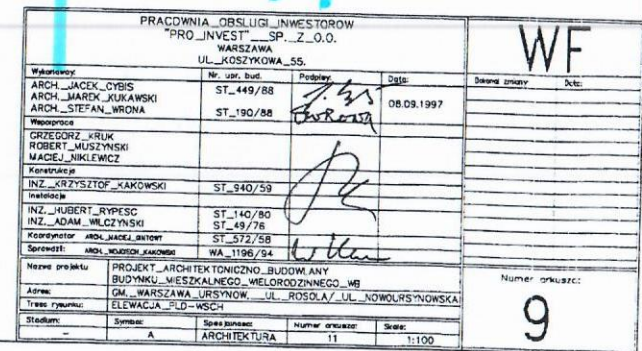 PRACOWNIA_OBSLUGI_INWESTOROW
"PRO_INVEST"__SP._Z_O.O.
WARSZAWA
UL._KOSZYKOWA_55.
WF
Wykonawcy: Nr. upr. bud. Podpisy: Data: Dokonal zmiany Data:
ARCH._JACEK_CYBIS ST_449/88 08.09.1997
ARCH._MAREK_KUKAWSKI
ARCH._STEFAN_WRONA ST_190/88
Wspolpraca
GRZEGORZ_KRUK
ROBERT_MUSZYNSKI
MACIEJ_NIKLEWICZ
Konstrukcje
INZ._KRZYSZTOF_KAKOWSKI ST_940/59
Instalacje
INZ._HUBERT_RYPESC ST_140/80
INZ._ADAM_WILCZYNSKI ST_49/76
Koordynator ARCH._MACIEJ_GINTOWT ST_572/58
Sprawdzil: ARCH._WOJCIECH_KAKOWSKI WA_1196/94
Nazwa projektu PROJEKT_ARCHITEKTONICZNO_BUDOWLANY
BUDYNKU_MIESZKALNEGO_WIELORODZINNEGO_WB
Adres: GM._WARSZAWA_URSYNOW,__UL._ROSOLA/_UL._NOWOURSYNOWSKA
Tresc rysunku: ELEWACJA_PLD-WSCH
Numer arkusza:
9
Stadium: Symbol: Specjalnosc: Numer arkusza: Skala:
– A ARCHITEKTURA 11 1:100